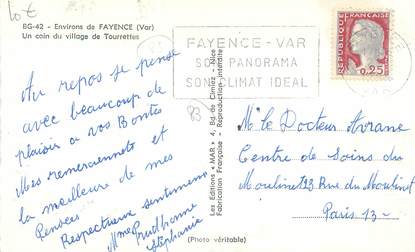 10 €
BG-42 - Environs de FAYENCE (Var)
Un coin du village de Tourrettes
FAYENCE-VAR
SON PANORAMA
SON CLIMAT IDEAL
REPUBLIQUE FRANÇAISE
0,25
Au repos je pense
avec beaucoup de
plaisir a vos Bontés
Mes remerciements et
la meilleure de mes
Pensées
Respectueux sentiments
Mme Prudhomme
Stéphanie
83
Les Editions "MAR" 4, Bd de Cimiez - Nice
Fabrication Française - Reproduction interdite
Mr le Docteur
Centre de Soins du
Moulinet 23 Rue du Moulinet
Paris 13 -
(Photo véritable)